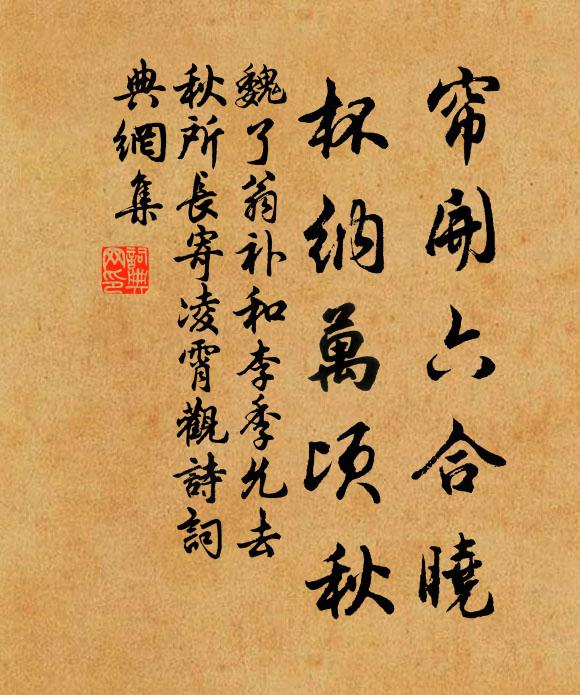 帘開六合曉
杯納萬頃秋
魏了翁补和李季允去
秋所長寄凌霄觀詩詞
典網集
詞典
网印